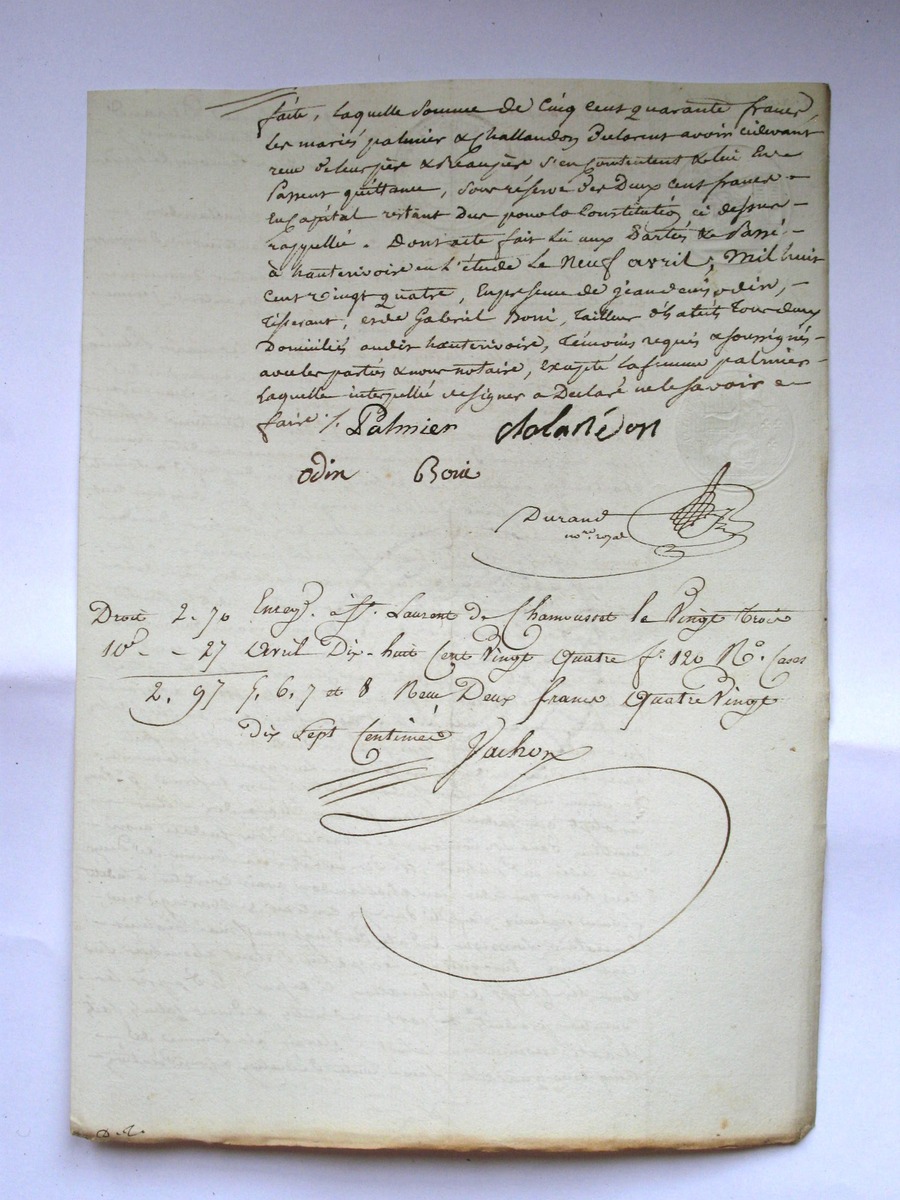 faite, laquelle somme de Cinq cent quarante francs,
les mariés palmier & Challandon declarent avoir cidevant
reçu de leur père & Beaupère s'en contentent & lui en
Passent quittance, sous réserve des Deux cent francs
En Capital restant dus pour la Constitution ci dessus
rappellée. Dont acte fait lu aux Parties & Passé
à hauterivoire en l'étude Le Neuf avril, Mil huit
cent vingt quatre, En presence de jean denis odin,
tisserant, et de Gabriel Boni, tailleur d'habits tous deux
Domiciliés audit hauterivoire, témoins requis & soussignés
avec les parties & nous notaire, Excepté la femme palmier
laquelle interpellée de signer a Declaré ne le savoir
faire ./. Palmier
odin
Durand
no.re royal
Droit 2. 70 Enreg.é à St. Laurent de Chamousset le Vingt trois
10e - - 27 avril Dix-huit Cent Vingt quatre f.o 120 R.o Cases
2. 97 5. 6. 7 et 8 Recu Deux francs Quatre Vingt
dix Sept Centimes
D. R.